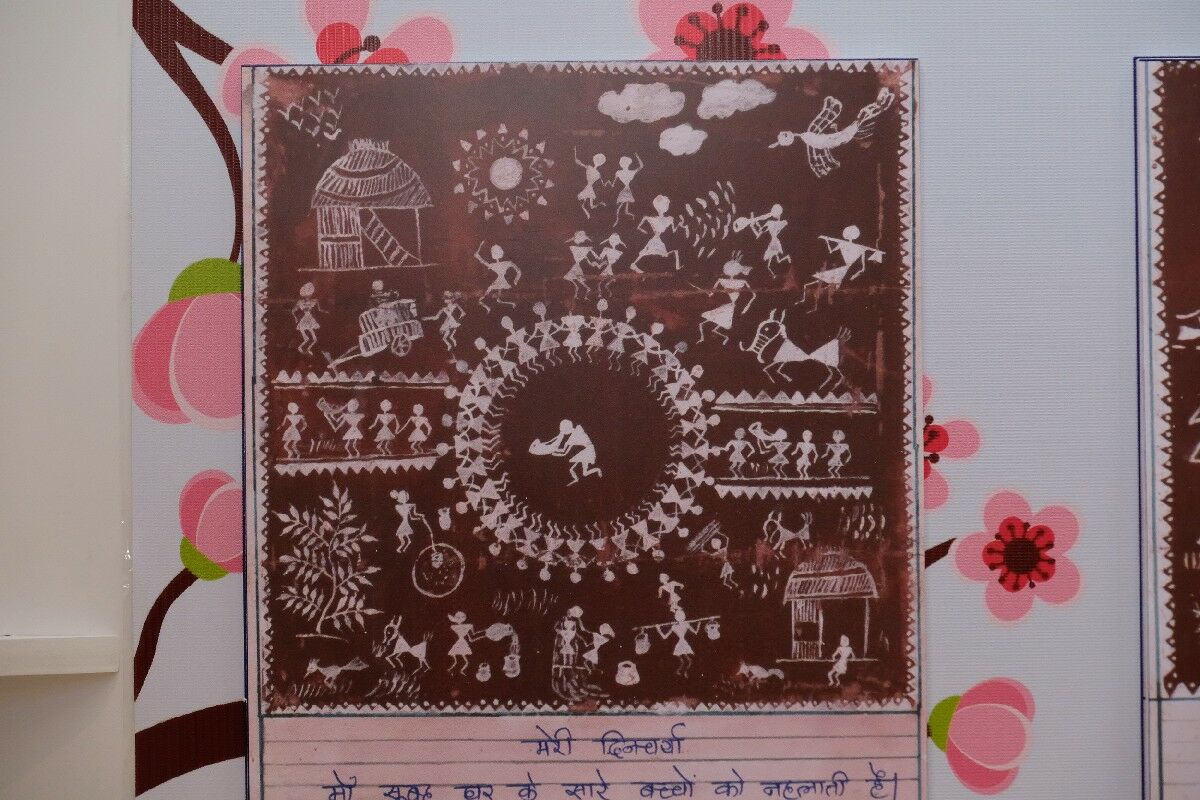 मेरी दिनचर्या
माँ सुबह घर के सारे बच्चों को नहलाती है।